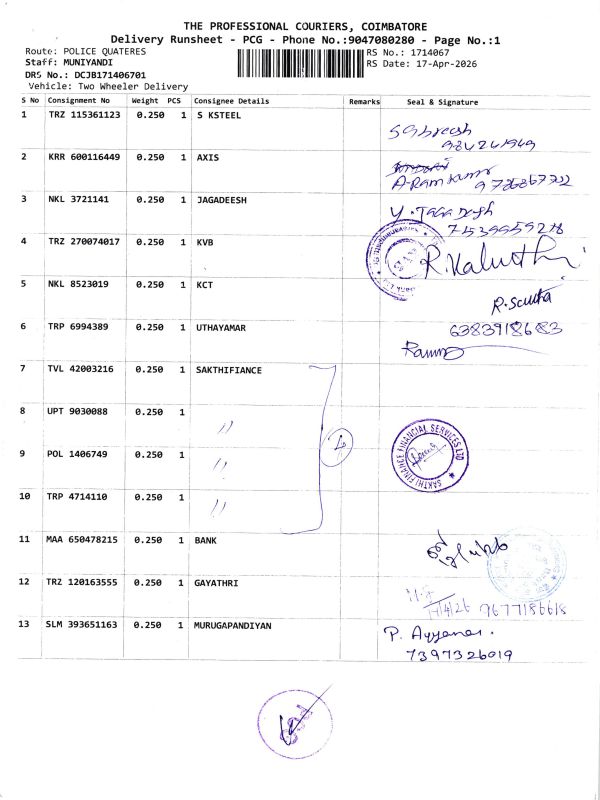 THE PROFESSIONAL COURIERS, COIMBATORE
Delivery Runsheet - PCG - Phone No.:9047080280 - Page No.:1
Route: POLICE QUATERES
RS No.: 1714067
Staff: MUNIYANDI
RS Date: 17-Apr-2026
DRS No.: DCJB171406701
Vehicle: Two Wheeler Delivery
S No Consignment No Weight PCS Consignee Details Remarks Seal & Signature
1 TRZ 115361123 0.250 1 S KSTEEL
2 KRR 600116449 0.250 1 AXIS
A-Ram Kumar
3 NKL 3721141 0.250 1 JAGADEESH
Y. Jagadesh
4 TRZ 270074017 0.250 1 KVB
5 NKL 8523019 0.250 1 KCT
6 TRP 6994389 0.250 1 UTHAYAMAR
7 TVL 42003216 0.250 1 SAKTHIFIANCE
8 UPT 9030088 0.250 1 〃
9 POL 1406749 0.250 1 〃
SAKTHI FINANCE FINANCIAL SERVICES LTD
10 TRP 4714110 0.250 1 〃
11 MAA 650478215 0.250 1 BANK
12 TRZ 120163555 0.250 1 GAYATHRI
17/4/26 9677186618
13 SLM 393651163 0.250 1 MURUGAPANDIYAN
P. Ayyanar.
7397326019